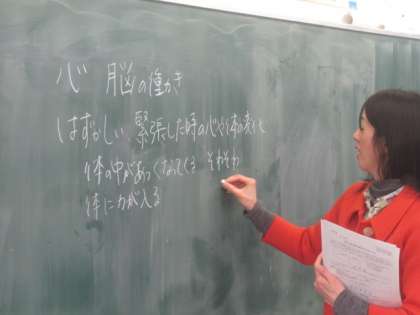 心 脳の働き
はずかしい 緊張した時の心や体の変化
体の中があつくなってくる そわそわ
体に力が入る